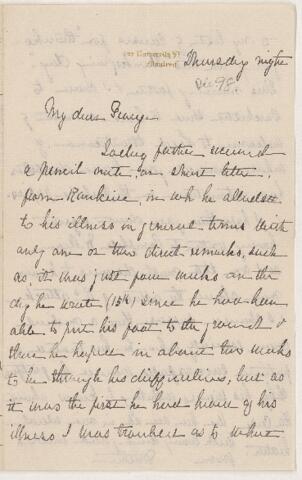 University St
Montreal
Thursday night
Dec 98.
My dear George
Today father received
a pencil note or short letter,
from Rankine, in wh he alluded
to his illness in general terms with
only one or two direct remarks, such
as, it was just four weeks on the
day he wrote (15th) since he had been
able to put his foot to the ground &
then he hoped in about two weeks
to be through his difficulties, but as
it was the first he had heard of his
illness I was troubled as to what